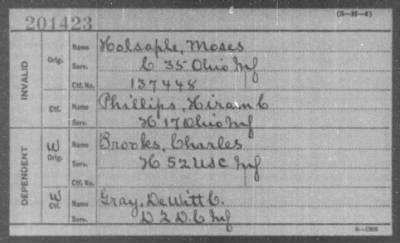 201423 (3-H-4)
INVALID Orig. Name Holsaple, Moses
Serv. C 35 Ohio Inf
Ctf. No. 137448
Ctf. Name Phillips, Hiram C
Serv. H 17 Ohio Inf
DEPENDENT W Orig. Name Brooks, Charles
Serv. H 52 USC Inf
Ctf. No.
W Ctf. Name Gray, DeWitt C.
Serv. D 2 D.C Inf